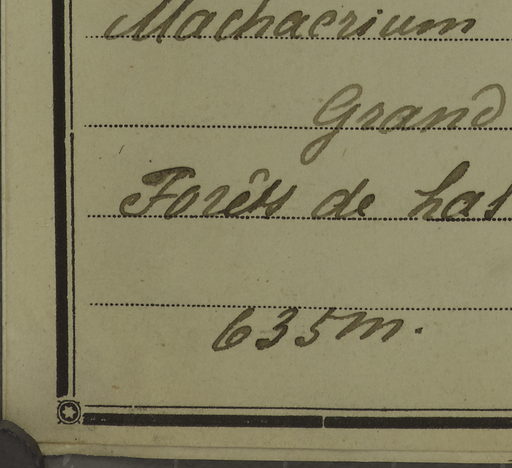 Machaerium
Grand
Forêts de
635 m.